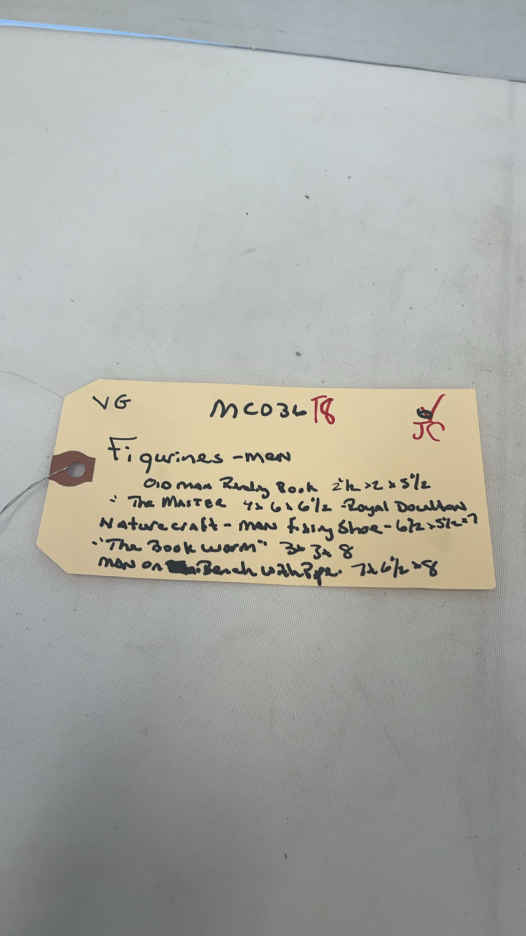 VG MC036 T8
JC
Figurines - men
Old man Reading Book 2½ x 2 x 5½
"The Master 4 x 6 x 6½ - Royal Doulton
Naturecraft - man fixing Shoe - 6½ x 5½ x 7
"The Book worm" 3 x 3 x 8
man on Bench with Pipe 7 x 6½ x 8